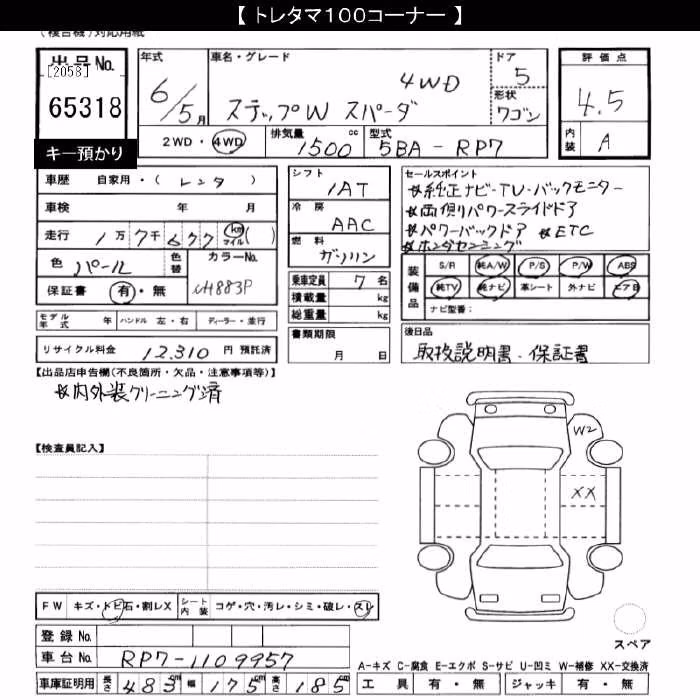 【 トレタマ100コーナー 】
(複合機)対応用紙
出品No.
[2058]
65318
キー預かり
年式 6/5月
車名・グレード ステップW スパーダ 4WD
ドア 5
形状 ワゴン
評価点 4.5
内装 A
2WD・4WD
排気量 1500 cc
型式 5BA-RP7
車歴 自家用・( レンタ )
車検 年 月
走行 1万7千677 km マイル( )
色 パール
色替
カラーNo. NH883P
保証書 有・無
シフト IAT
冷房 AAC
燃料 ガソリン
乗車定員 7名
積載量 kg
総重量 kg
書類期限 月 日
セールスポイント
☆純正ナビ-TV-バックモニター
☆両側パワースライドドア
☆パワーバックドア ☆ETC
☆ホンダセンシング
装備品
S/R 純A/W P/S P/W ABS
純TV 純ナビ 革シート 外ナビ エアB
ナビ型番:
モデル年式 年 ハンドル 左・右 ディーラー・並行
リサイクル料金 12,310 円 預託済
後日品
取扱説明書・保証書
【出品店申告欄(不良箇所・欠品・注意事項等)】
☆内外装クリーニング済
【検査員記入】
W2
XX
FW キズ・トビ石・割レX シート内装 コゲ・穴・汚レ・シミ・破レ・スレ
スペア
登録No.
車台No. RP7-1109957
A-キズ C-腐食 E-エクボ S-サビ U-凹ミ W-補修 XX-交換済
車庫証明用 長さ 483cm 幅 175cm 高さ 185cm
工具 有・無 ジャッキ 有・無